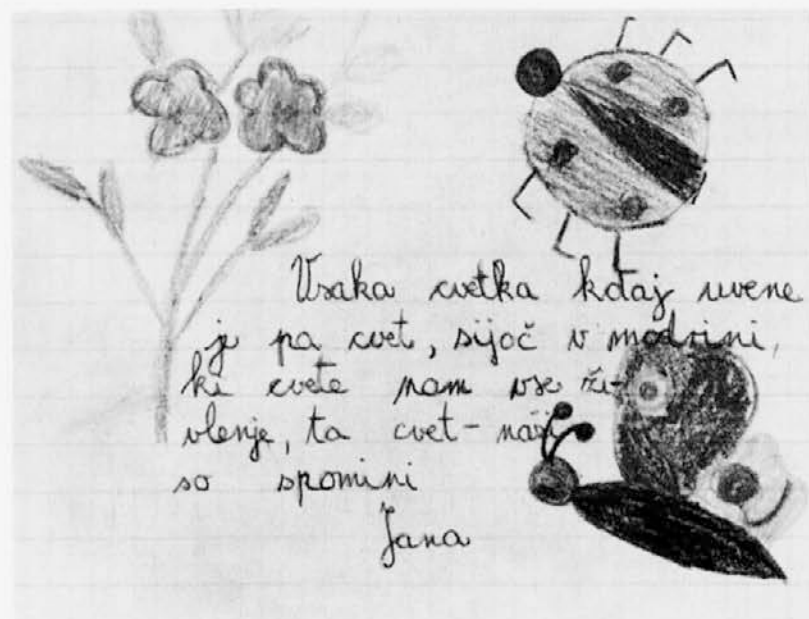 Vsaka cvetka kdaj uvene
je pa cvet, sijoč v modrini,
ki cvete nam vse ži-
vlenje, ta cvet - naši
so spomini
Jana